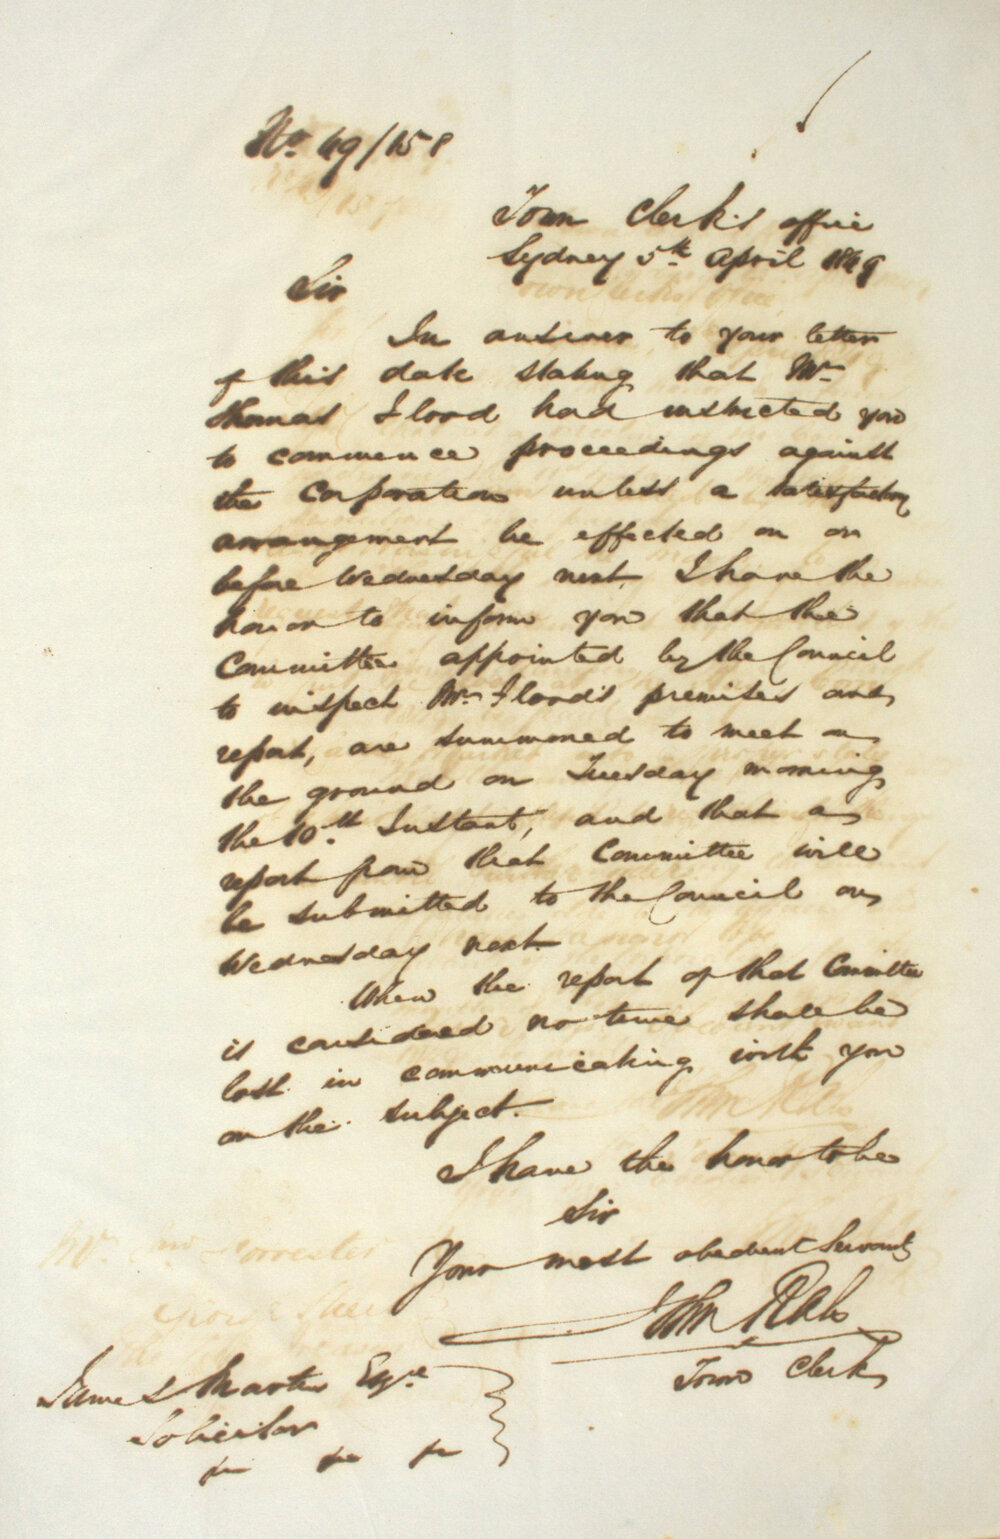 No 49/158
Town Clerk's office
Sydney 5th April 1849
Sir
In answer to your letter
of this date stating that Mr
Thomas Flood had instructed you
to commence proceedings against
the Corporation unless a satisfactory
arrangement be effected on or
before Wednesday next. I have the
honor to inform you that the
Committee appointed by the Council
to inspect Mr Flood's premises and
report, are summoned to meet on
the ground on Tuesday morning
the 10th Instant, and that a
report from that Committee will
be submitted to the Council on
Wednesday next.
When the report of that Committee
is considered no time shall be
lost in communicating with you
on the subject.
I have the honor to be
Sir
Your most obedient Servant
John Rae
Town Clerk
James Martin Esqre
Solicitor